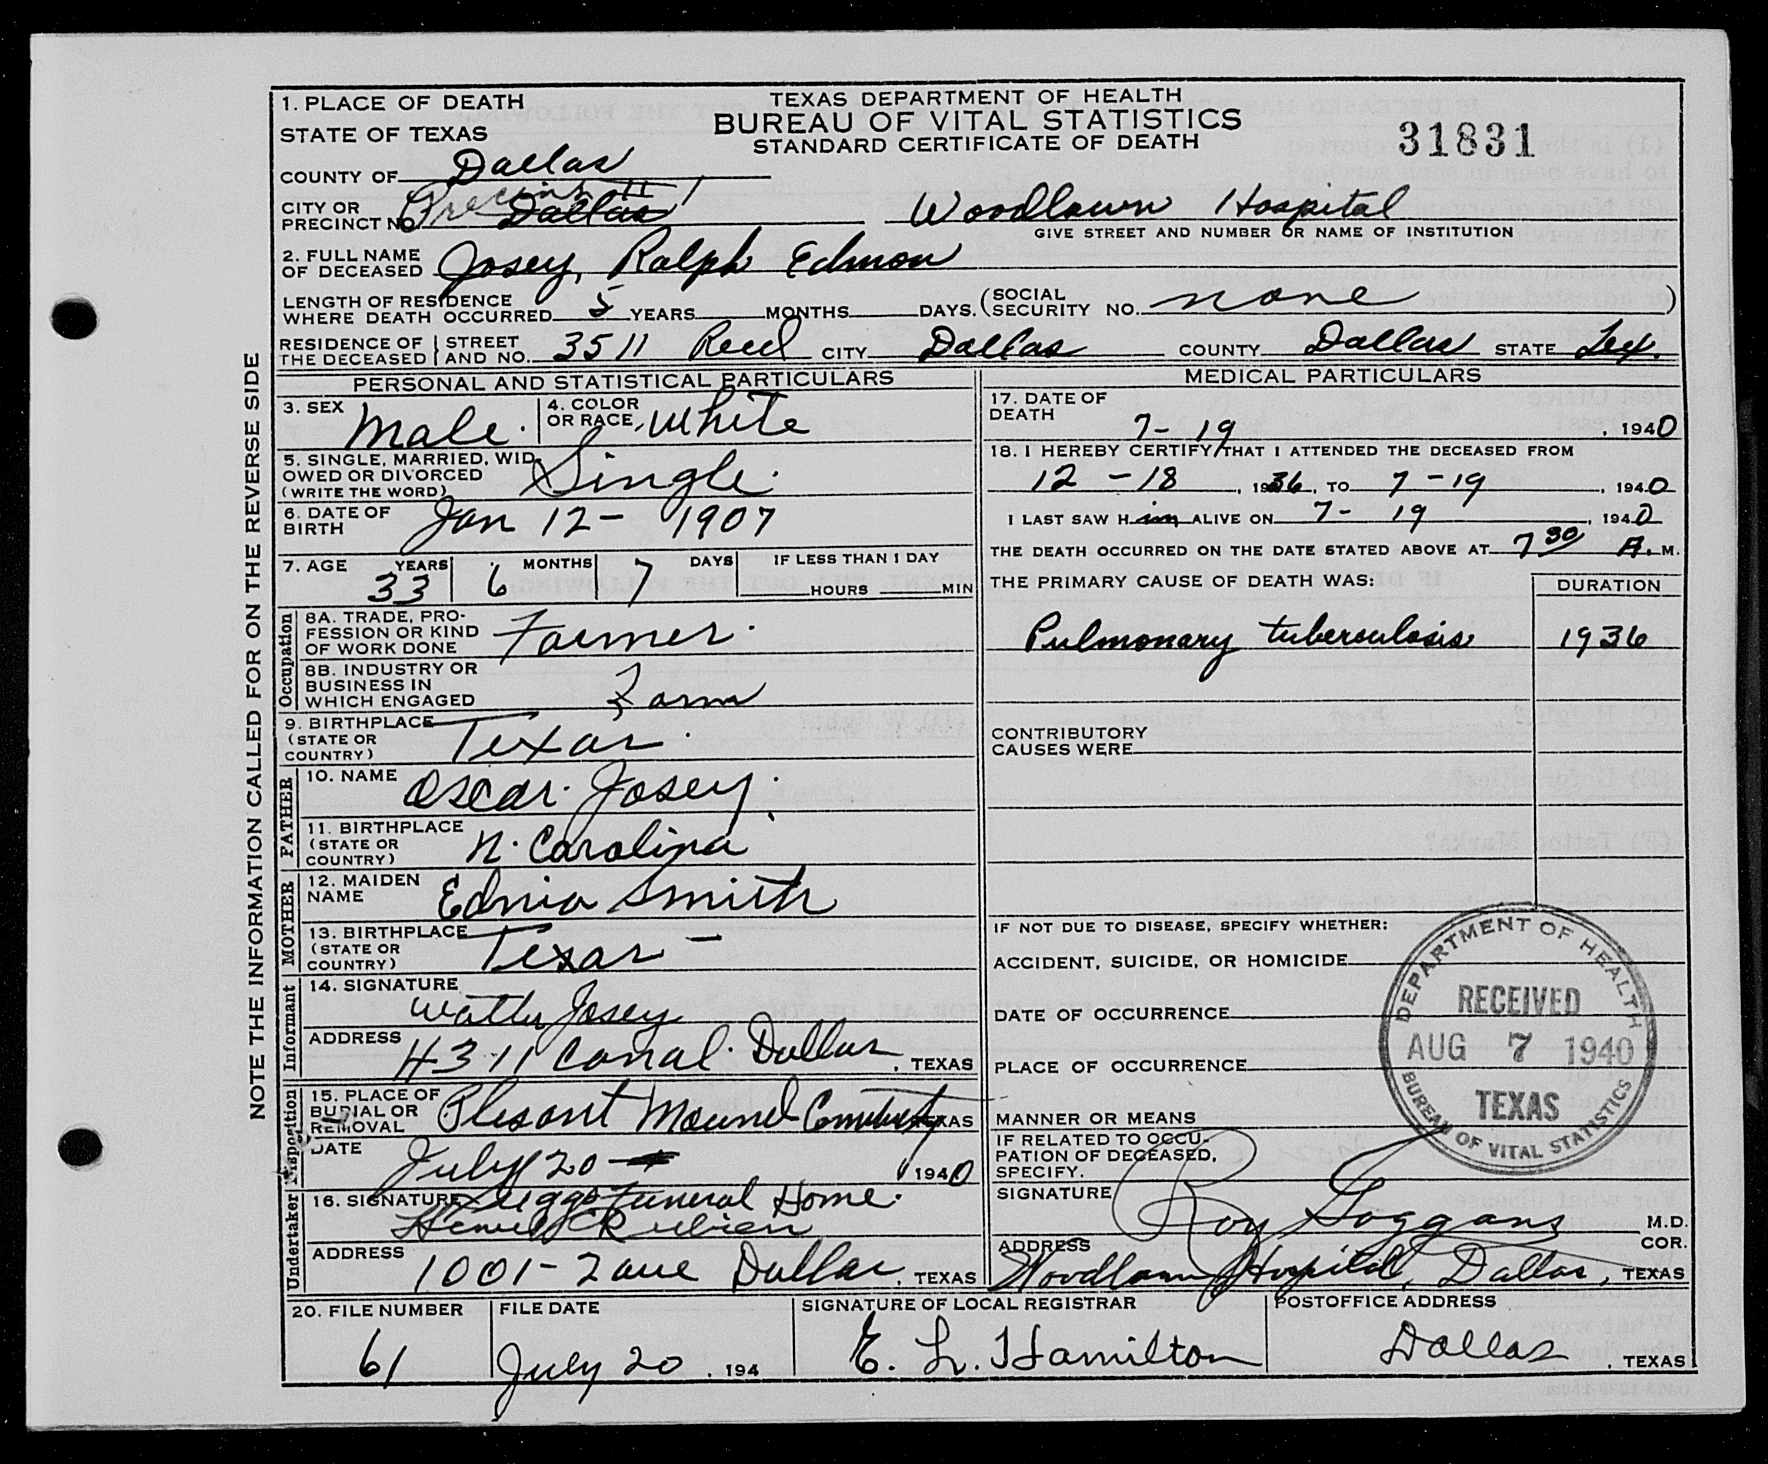 1. PLACE OF DEATH
STATE OF TEXAS
TEXAS DEPARTMENT OF HEALTH
BUREAU OF VITAL STATISTICS
STANDARD CERTIFICATE OF DEATH
31831
COUNTY OF Dallas
CITY OR PRECINCT NO. Precinct 1 Dallas Woodlawn Hospital
GIVE STREET AND NUMBER OR NAME OF INSTITUTION
2. FULL NAME OF DECEASED Josey, Ralph Edmon
LENGTH OF RESIDENCE WHERE DEATH OCCURRED 5 YEARS MONTHS DAYS. (SOCIAL SECURITY NO. none )
RESIDENCE OF THE DECEASED STREET AND NO. 3511 Reed CITY Dallas COUNTY Dallas STATE Tex.
NOTE THE INFORMATION CALLED FOR ON THE REVERSE SIDE
PERSONAL AND STATISTICAL PARTICULARS
3. SEX Male. 4. COLOR OR RACE, White
5. SINGLE, MARRIED, WIDOWED OR DIVORCED (WRITE THE WORD) Single.
6. DATE OF BIRTH Jan 12- 1907
7. AGE YEARS 33 MONTHS 6 DAYS 7 IF LESS THAN 1 DAY HOURS MIN
Occupation
8A. TRADE, PROFESSION OR KIND OF WORK DONE Farmer.
8B. INDUSTRY OR BUSINESS IN WHICH ENGAGED Farm
9. BIRTHPLACE (STATE OR COUNTRY) Texas.
FATHER
10. NAME Oscar. Josey.
11. BIRTHPLACE (STATE OR COUNTRY) N. Carolina
MOTHER
12. MAIDEN NAME Ednia Smith
13. BIRTHPLACE (STATE OR COUNTRY) Texas -
Informant
14. SIGNATURE Walter Josey
ADDRESS 4311 Canal. Dallas, TEXAS
Disposition
15. PLACE OF BURIAL OR REMOVAL Plesant Mound TEXAS
DATE July 20 1940
Undertaker
16. SIGNATURE Funeral Home.
ADDRESS 1001- Zang Dallas, TEXAS
MEDICAL PARTICULARS
17. DATE OF DEATH 7- 19, 1940
18. I HEREBY CERTIFY THAT I ATTENDED THE DECEASED FROM
12 - 18, 1936, TO 7 - 19, 1940
I LAST SAW HIM ALIVE ON 7- 19, 1940
THE DEATH OCCURRED ON THE DATE STATED ABOVE AT 7 30 A. M.
THE PRIMARY CAUSE OF DEATH WAS: DURATION
Pulmonary tuberculosis 1936
CONTRIBUTORY CAUSES WERE
IF NOT DUE TO DISEASE, SPECIFY WHETHER:
ACCIDENT, SUICIDE, OR HOMICIDE
DATE OF OCCURRENCE
PLACE OF OCCURRENCE
MANNER OR MEANS
IF RELATED TO OCCUPATION OF DECEASED, SPECIFY.
SIGNATURE Roy Goggans M.D. COR.
ADDRESS Woodlawn Hospital, Dallas, TEXAS
DEPARTMENT OF HEALTH
RECEIVED
AUG 7 1940
TEXAS
BUREAU OF VITAL STATISTICS
20. FILE NUMBER 61
FILE DATE July 20, 194
SIGNATURE OF LOCAL REGISTRAR E. L. Hamilton
POSTOFFICE ADDRESS Dallas, TEXAS